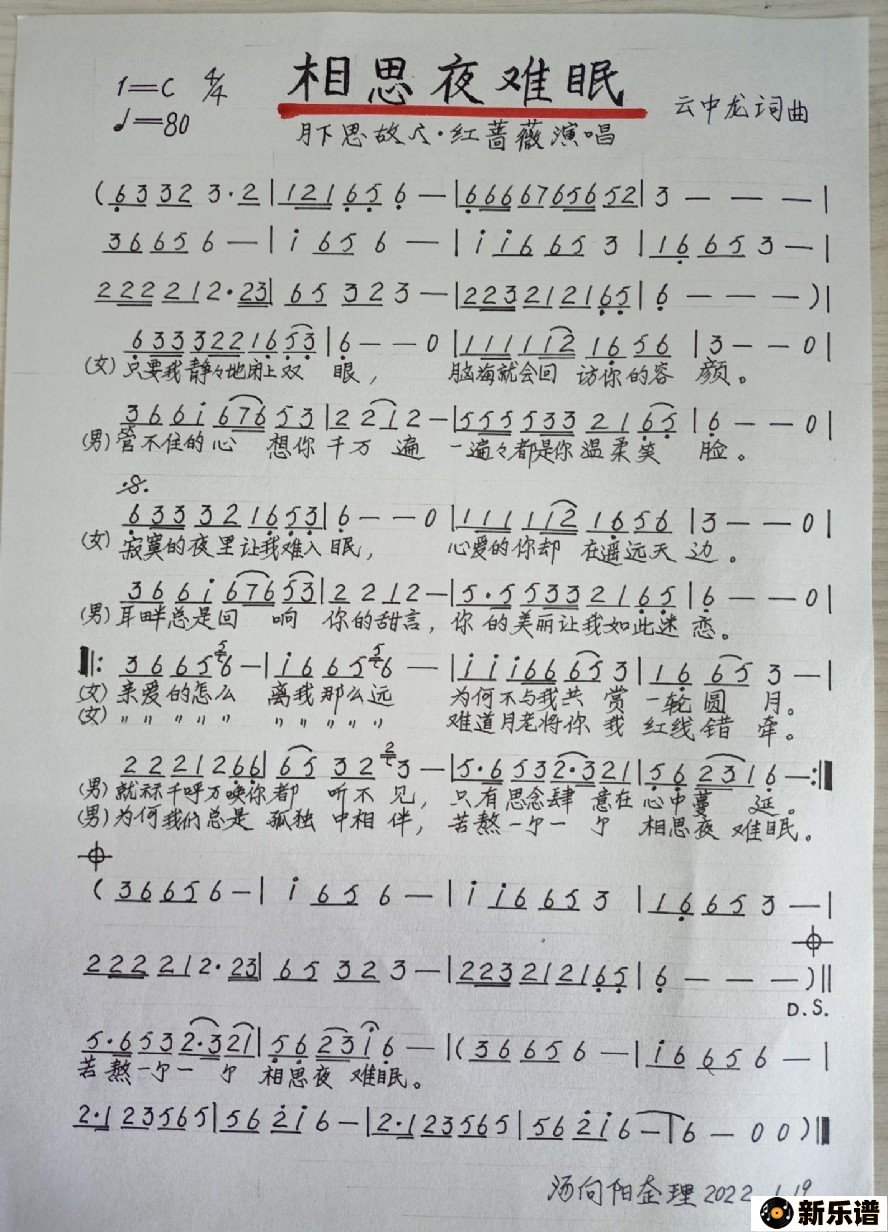 1=C 4/4 相思夜难眠
♩=80 云中龙词曲
月下思故人·红蔷薇演唱
(6332 3·2|121656—|66667656 52|3———|
36656—|i656—|ii6653|16653—|
2222 12·23|653233—|223212165|6———)|
6333322 1653|6——0|1111112 1656|3——0|
(女)只要我静々地闭上双 眼， 脑海就会回 访你的容 颜。
366i67653|22 12—|555533 2165|6——0|
(男)管不住的心 想你千万 遍 一遍々都是你温柔笑 脸。
𝄋
63332 1653|6——0|1111112 1656|3——0|
(女)寂寞的夜里让我难入 眠， 心爱的你却 在遥远天 边。
366i67653|2212—|5·5533 2165|6——0|
(男)耳畔总是回 响 你的甜言，你 的美丽让我如此迷 恋。
‖:366556—|i66556—|iii66653|16653—|
(女)亲爱的怎么 离我那么远 为何不与我共 赏 一轮圆 月。
(女)〃〃〃〃〃 〃〃〃〃〃 难道月老将你 我 红线错 牵。
22212 66|653223—|5·6532·321|562316—:‖
(男)就称千呼万唤你都 听不 见，只有思念肆 意在 心中蔓 延。
(男)为何我们总是 孤独 中相 伴，苦熬一分一 分 相思夜 难眠。
(36656—|i656—|ii6653|16653—|
2222 12·23|653233—|223212165|6———)‖
D.S.
5·6532·321|5623i6—|(366656—|i66656—|
苦熬一分一 分 相思夜 难眠。
2·1235 65|562i6—|2·1235 65|562i6—|6—00)‖
汤向阳整理2022.1.19
新乐谱